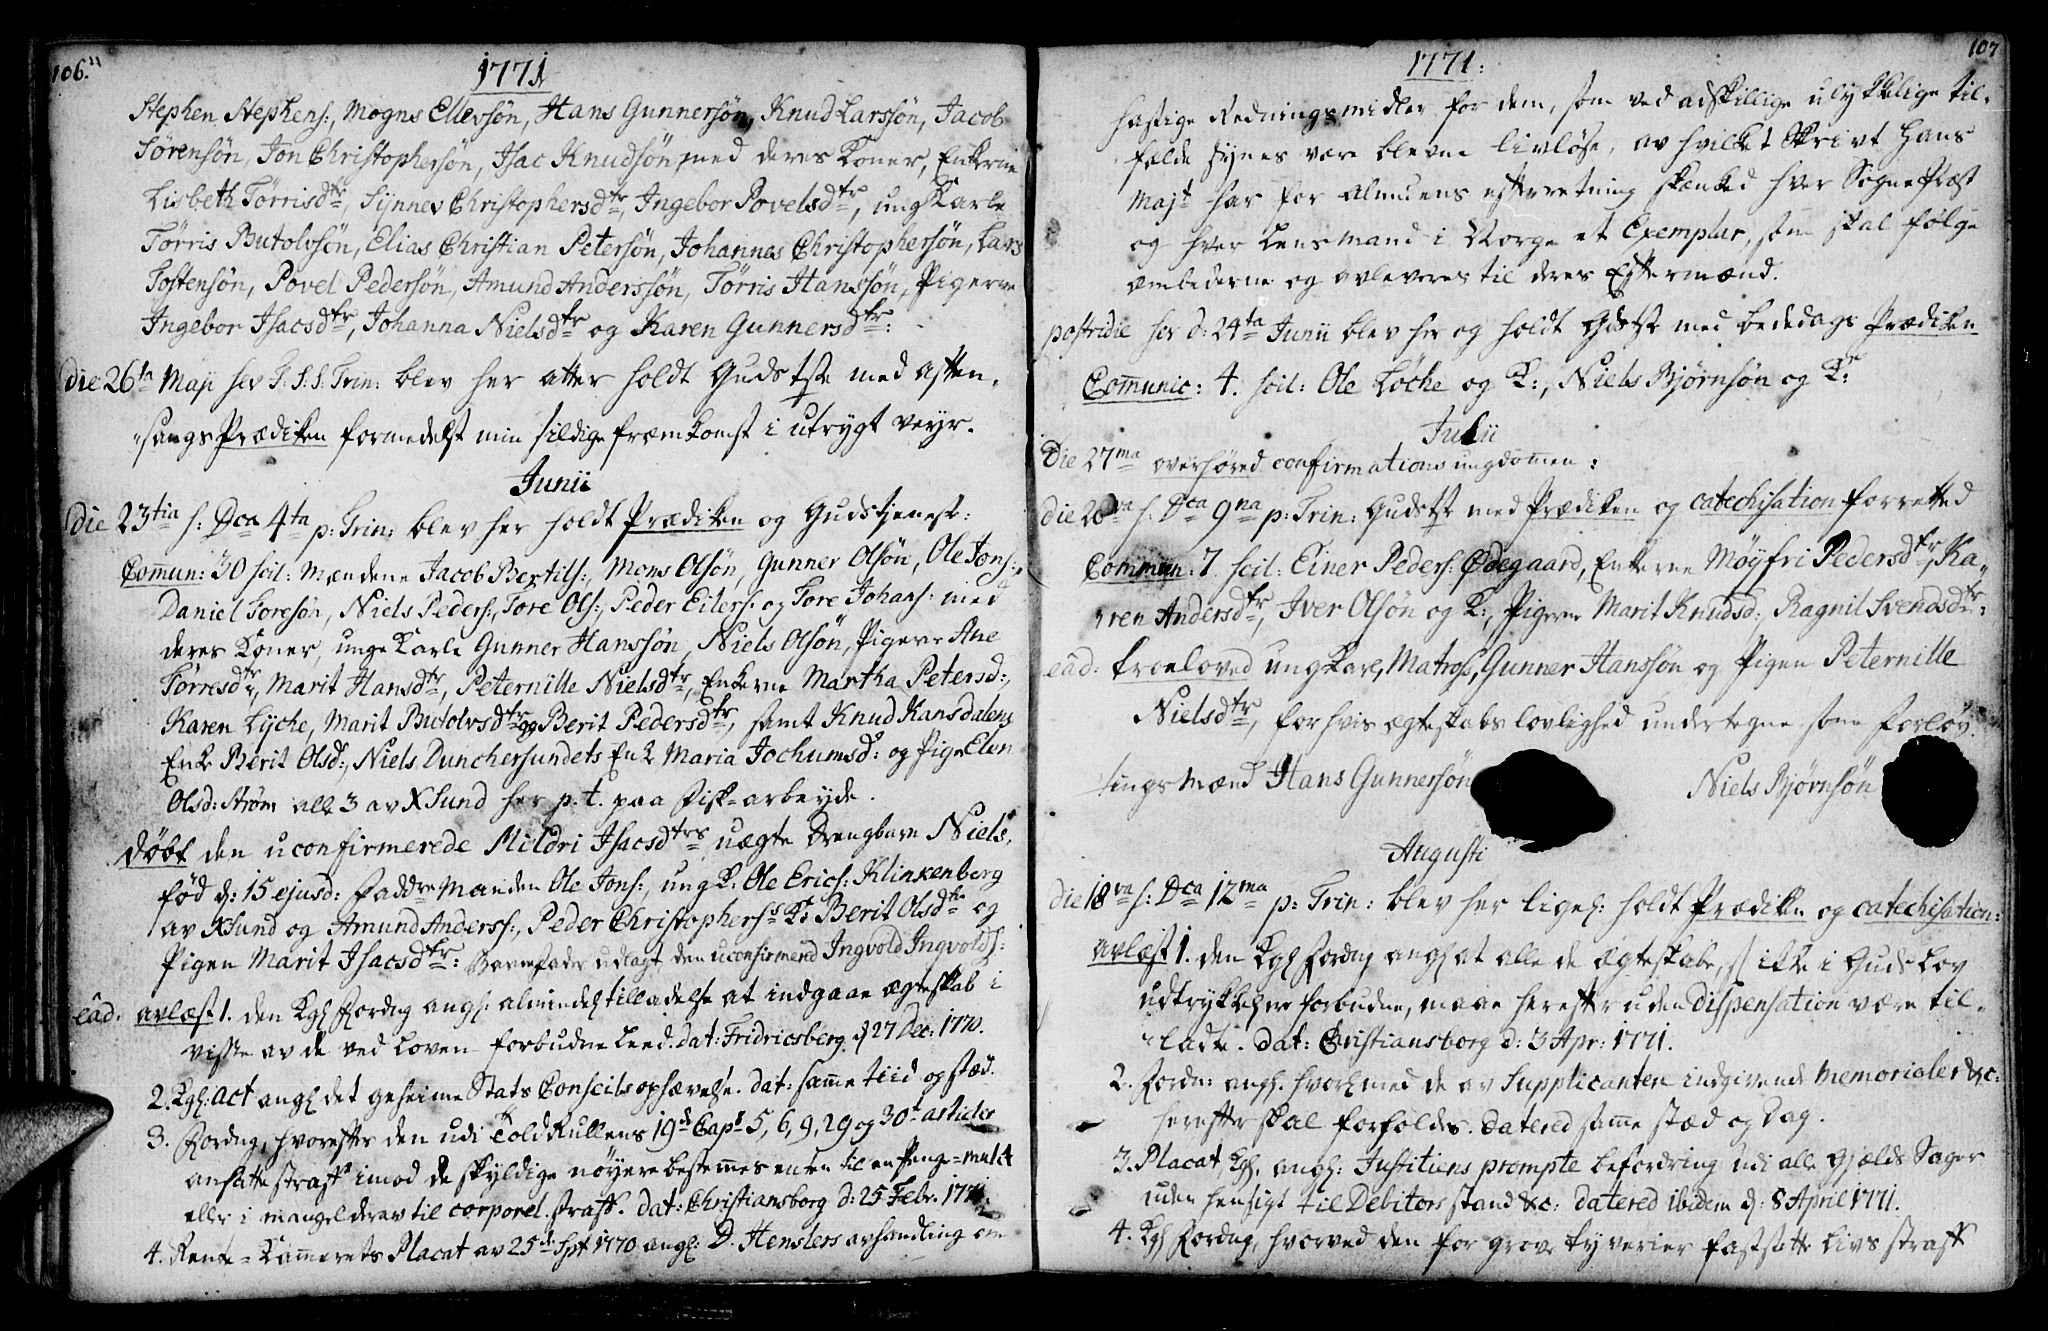 106.
1771
Stephen Stephens:, Mogns Ellevsøn, Hans Gunnersøn, Knud Larssøn, Jacob
Sørensøn, Jon Christophersøn, Isac Knudsøn, med deres Koner, Enkerne
Lisbeth Tørrisdtr, Synnev Christophersdtr, Ingebor Povelsdtr, ung Karle
Tørris Butolvsøn, Elias Christian Petersøn, Johannes Christophersøn, Lars
Tostensøn, Povel Pedersøn, Amund Anderssøn, Tørris Hanssøn, Pigerne
Ingebor Isacsdtr, Johanna Nielsdtr og Karen Gunnersdtr:
die 26ta Maji sev F: S: S: Trin: blev her atter holdt Gudstste med Aften,
"sangs Prædiken formedelst min sildige fræmkomst i utrygt veyr.
Junii
die 23tia s: Dca 4ta p: Trin: blev her holdt Prædiken og Gudstjenest:
Com̅un: 30 scil: Mændene Jacob Bertils:, Mons Olsøn, Gunner Olsøn, Ole Jons:,
Daniel Toresøn, Niels Peders:, Tore Ols:, Peder Eilers: og Tore Johans: med
deres Koner, unge Karle Gunner Hanssøn, Niels Olsøn, Pigerne Ane
Tørresdtr, Marit Hansdtr, Peternille Nielsdtr, Enkerne Martha Petersd:,
Karen Lyche, Marit Butolvsdtr og Berit Pedersdtr, samt Knud Kansdalens
Enke Berit Olsd:, Niels Dunchersundets Enk Maria Jochumsd: og Pige Elen
Olsd: Strøm alle 3 av XSund her p. t. paa Fisk-arbeyde.
Døbt den uconfirmerede Mildri Isacsdtrs uægte Drengbarn Niels,
fød d: 15 ejusd: Faddre Manden Ole Jons:, ungK: Ole Erics: Klinkenberg
av XSund og Amund Anderss:, Peder Christophers: K: Berit Olsdtr og
Pigen Marit Isacsdtr: Barnefader udlagt den uconfirmered Ingvold Ingvolds:
eâd: avlæst 1. den Kgl Fordng angl: almindel tilladelse at indgaae ægteskab i
visse av de ved Loven forbudne Leed. dat: Fridricsberg d 27 Dec: 1770.
2. Kgl: Act angl det geheime Stats Conseils ophævelse. dat: samme tiid og stæd.
3. Fordng, hvorefter den udi Told Rullens 19d Capt 5, 6, 9, 29 og 30t articler
ansatte straff imod de skyldige nøyere bestemmes enten til en Penge-mulct
eller i mangel derav til corporel straff. dat: Christiansborg d: 25 Febr: 1771.
4. Rente-Kammerets Placat av 25d Spt 1770 angl: D. Henslers avhandling om
107
1771:
hastige Rednings midler for dem, som ved adskillige ulykkelige til-
fælde synes være blevne livløse, av hvilket Skrivt Hans
Majt har for almuens efterretning skænked hver Sogne Præst
og hver Lensmand i Norge et Exemplar, som skal følge
Embederne og avleveres til deres Eftermænd.
postridie sev d: 24ta Junii blev her og holdt Gudstste med bededags Prædiken
Com̅unic: 4. scil: Ole Løche og K:, Niels Bjørnsøn og K:
Julii
Die 27ma overhøred confirmations ungdommen:
die 28va s: Dca 9na p: Trin: Gudstste med Prædiken og catechisation forretted
Com̅un: 7. scil: Einer Peders: Ødegaard, Enkerne Møyfri Pedersdtr, Ka,
"ren Andersdtr, Iver Olsøn og K:, Pigerne Marit Knudsd: Ragnil Svendsdtr:
eâd: troeloved ungKarl, Matros, Gunner Hanssøn og Pigen Peternille
Nielsdtr, for hvis ægteskabs lovlighed undertegne som Forlov-
"ings Mænd Hans Gunnersøn Niels Bjørnsøn
Augusti
die 18va s: Dca 12ma p: Trin: blev her ligel: holdt Prædiken og catechisation:
avlæst 1. den Kgl Fordng angl at alle de Ægteskabe, s ikke i Guds Lov
udtrykkel ere forbudne, maae herefter uden Dispensation være til-
"ladte. dat: Christiansborg d: 3 Apr: 1771.
2. Fordn: angl. hvorl med de av Supplicanten indgivende Memorialer &c:
herefter skal forholdes. datered samme stæd og Dag.
3. Placat Kgl. angl: Justitiens prompte befordring udi alle Gjælds Sager
uden hensigt til Debitors stand &c: datered ibidem d: 8 April 1771.
4. Kgl Fordng, hvorved den for grove tyverier fastsatte livs straff